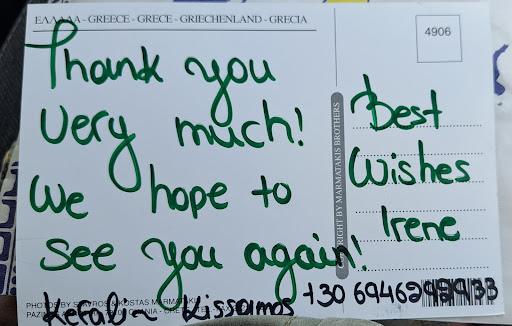 ΕΛΛΑΔΑ - GREECE - GRECE - GRIECHENLAND - GRECIA
4906
Thank you
very much!
We hope to
see you again!
Best
Wishes
Irene
RIGHT BY MARMATAKIS BROTHERS
PHOTOS BY STAVROS & KOSTAS MARMATAKIS
Kissamos +30 69462